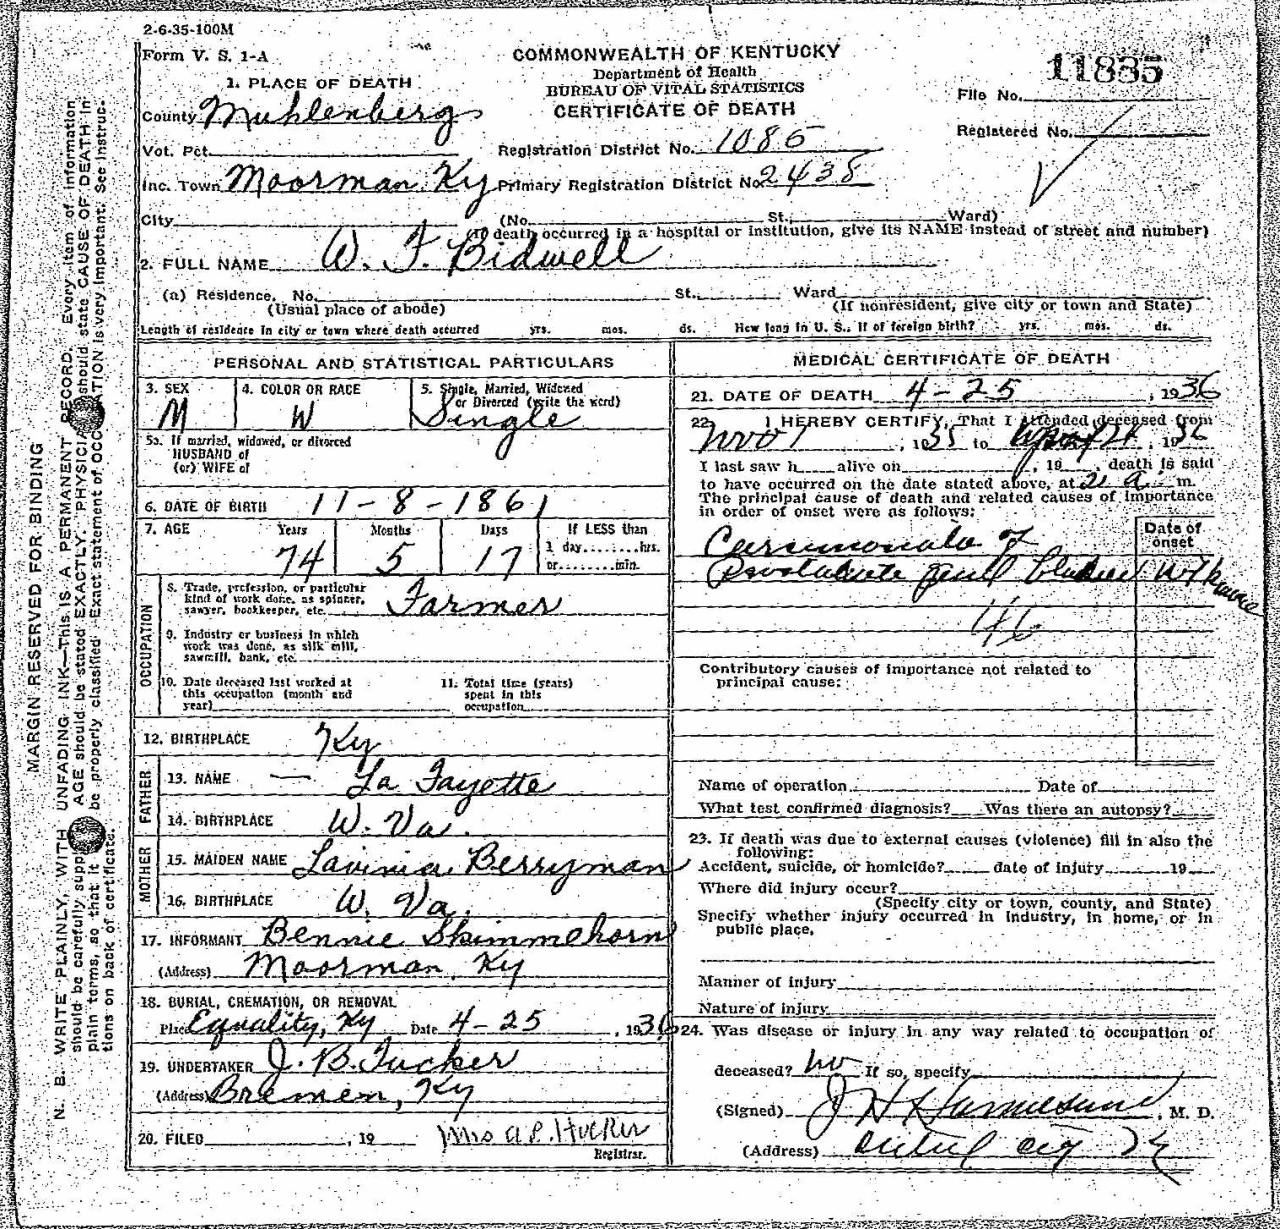 2-6-35-100M
Form V. S. 1-A
COMMONWEALTH OF KENTUCKY
Department of Health
BUREAU OF VITAL STATISTICS
CERTIFICATE OF DEATH
11835
File No.
Registered No.
1. PLACE OF DEATH
County Muhlenberg
Vot. Pct.
Registration District No. 1085
Inc. Town Moorman, Ky Primary Registration District No. 2438
City (No. St. Ward)
(If death occurred in a hospital or institution, give its NAME instead of street and number)
2. FULL NAME W. F. Bidwell
(a) Residence. No. St. Ward
(Usual place of abode) (If nonresident, give city or town and State)
Length of residence in city or town where death occurred yrs. mos. ds. How long in U. S., if of foreign birth? yrs. mos. ds.
MARGIN RESERVED FOR BINDING
N. B. WRITE PLAINLY, WITH UNFADING INK—THIS IS A PERMANENT RECORD. Every item of information
should be carefully supp AGE should be stated EXACTLY. PHYSICIA should state CAUSE OF DEATH in
plain terms, so that it be properly classified. Exact statement of OCC ATION is very important. See instruc-
tions on back of certificate.
PERSONAL AND STATISTICAL PARTICULARS
3. SEX
M
4. COLOR OR RACE
W
5. Single, Married, Widowed
or Divorced (write the word)
Single
5a. If married, widowed, or divorced
HUSBAND of
(or) WIFE of
6. DATE OF BIRTH 11-8-1861
7. AGE Years Months Days If LESS than
74 5 17 1 day........hrs.
or........min.
OCCUPATION
8. Trade, profession, or particular
kind of work done, as spinner,
sawyer, bookkeeper, etc. Farmer
9. Industry or business in which
work was done, as silk mill,
sawmill, bank, etc.
10. Date deceased last worked at
this occupation (month and
year)
11. Total time (years)
spent in this
occupation
12. BIRTHPLACE Ky
FATHER
13. NAME — La Fayette
14. BIRTHPLACE W. Va.
MOTHER
15. MAIDEN NAME Lavinia Berryman
16. BIRTHPLACE W. Va.
17. INFORMANT Bennie Skimmehorn
(Address) Moorman, Ky
18. BURIAL, CREMATION, OR REMOVAL
Place Equality, Ky Date 4-25, 1936
19. UNDERTAKER J. B. Tucker
(Address) Bremen, Ky
20. FILED , 19 Mrs
Registrar.
MEDICAL CERTIFICATE OF DEATH
21. DATE OF DEATH 4-25, 1936
22. I HEREBY CERTIFY, That I attended deceased from
Nov 1, 1935 to , 1936
I last saw h alive on , 19 , death is said
to have occurred on the date stated above, at 2 a. m.
The principal cause of death and related causes of importance
in order of onset were as follows:
Date of
onset
of
46
Contributory causes of importance not related to
principal cause:
Name of operation Date of
What test confirmed diagnosis? Was there an autopsy?
23. If death was due to external causes (violence) fill in also the
following:
Accident, suicide, or homicide? date of injury 19
Where did injury occur?
(Specify city or town, county, and State)
Specify whether injury occurred in industry, in home, or in
public place.
Manner of injury
Nature of injury
24. Was disease or injury in any way related to occupation of
deceased? no If so, specify
(Signed) J H , M. D.
(Address) city Ky